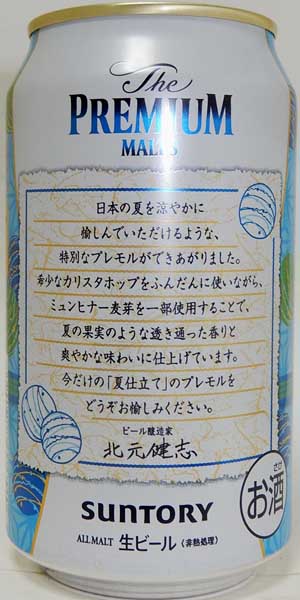 The
PREMIUM
MALT'S
日本の夏を涼やかに
愉しんでいただけるような、
特別なプレモルができあがりました。
希少なカリスタホップをふんだんに使いながら、
ミュンヒナー麦芽を一部使用することで、
夏の果実のような透き通った香りと
爽やかな味わいに仕上げています。
今だけの「夏仕立て」のプレモルを
どうぞお愉しみください。
ビール醸造家
北元健志
さけ
お酒
SUNTORY
ALL MALT 生ビール (非熱処理)